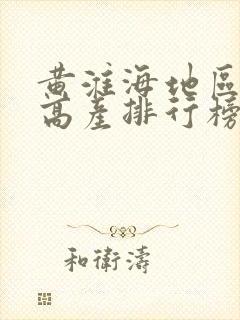 黄淮海地區
高産排行榜
和衛濤